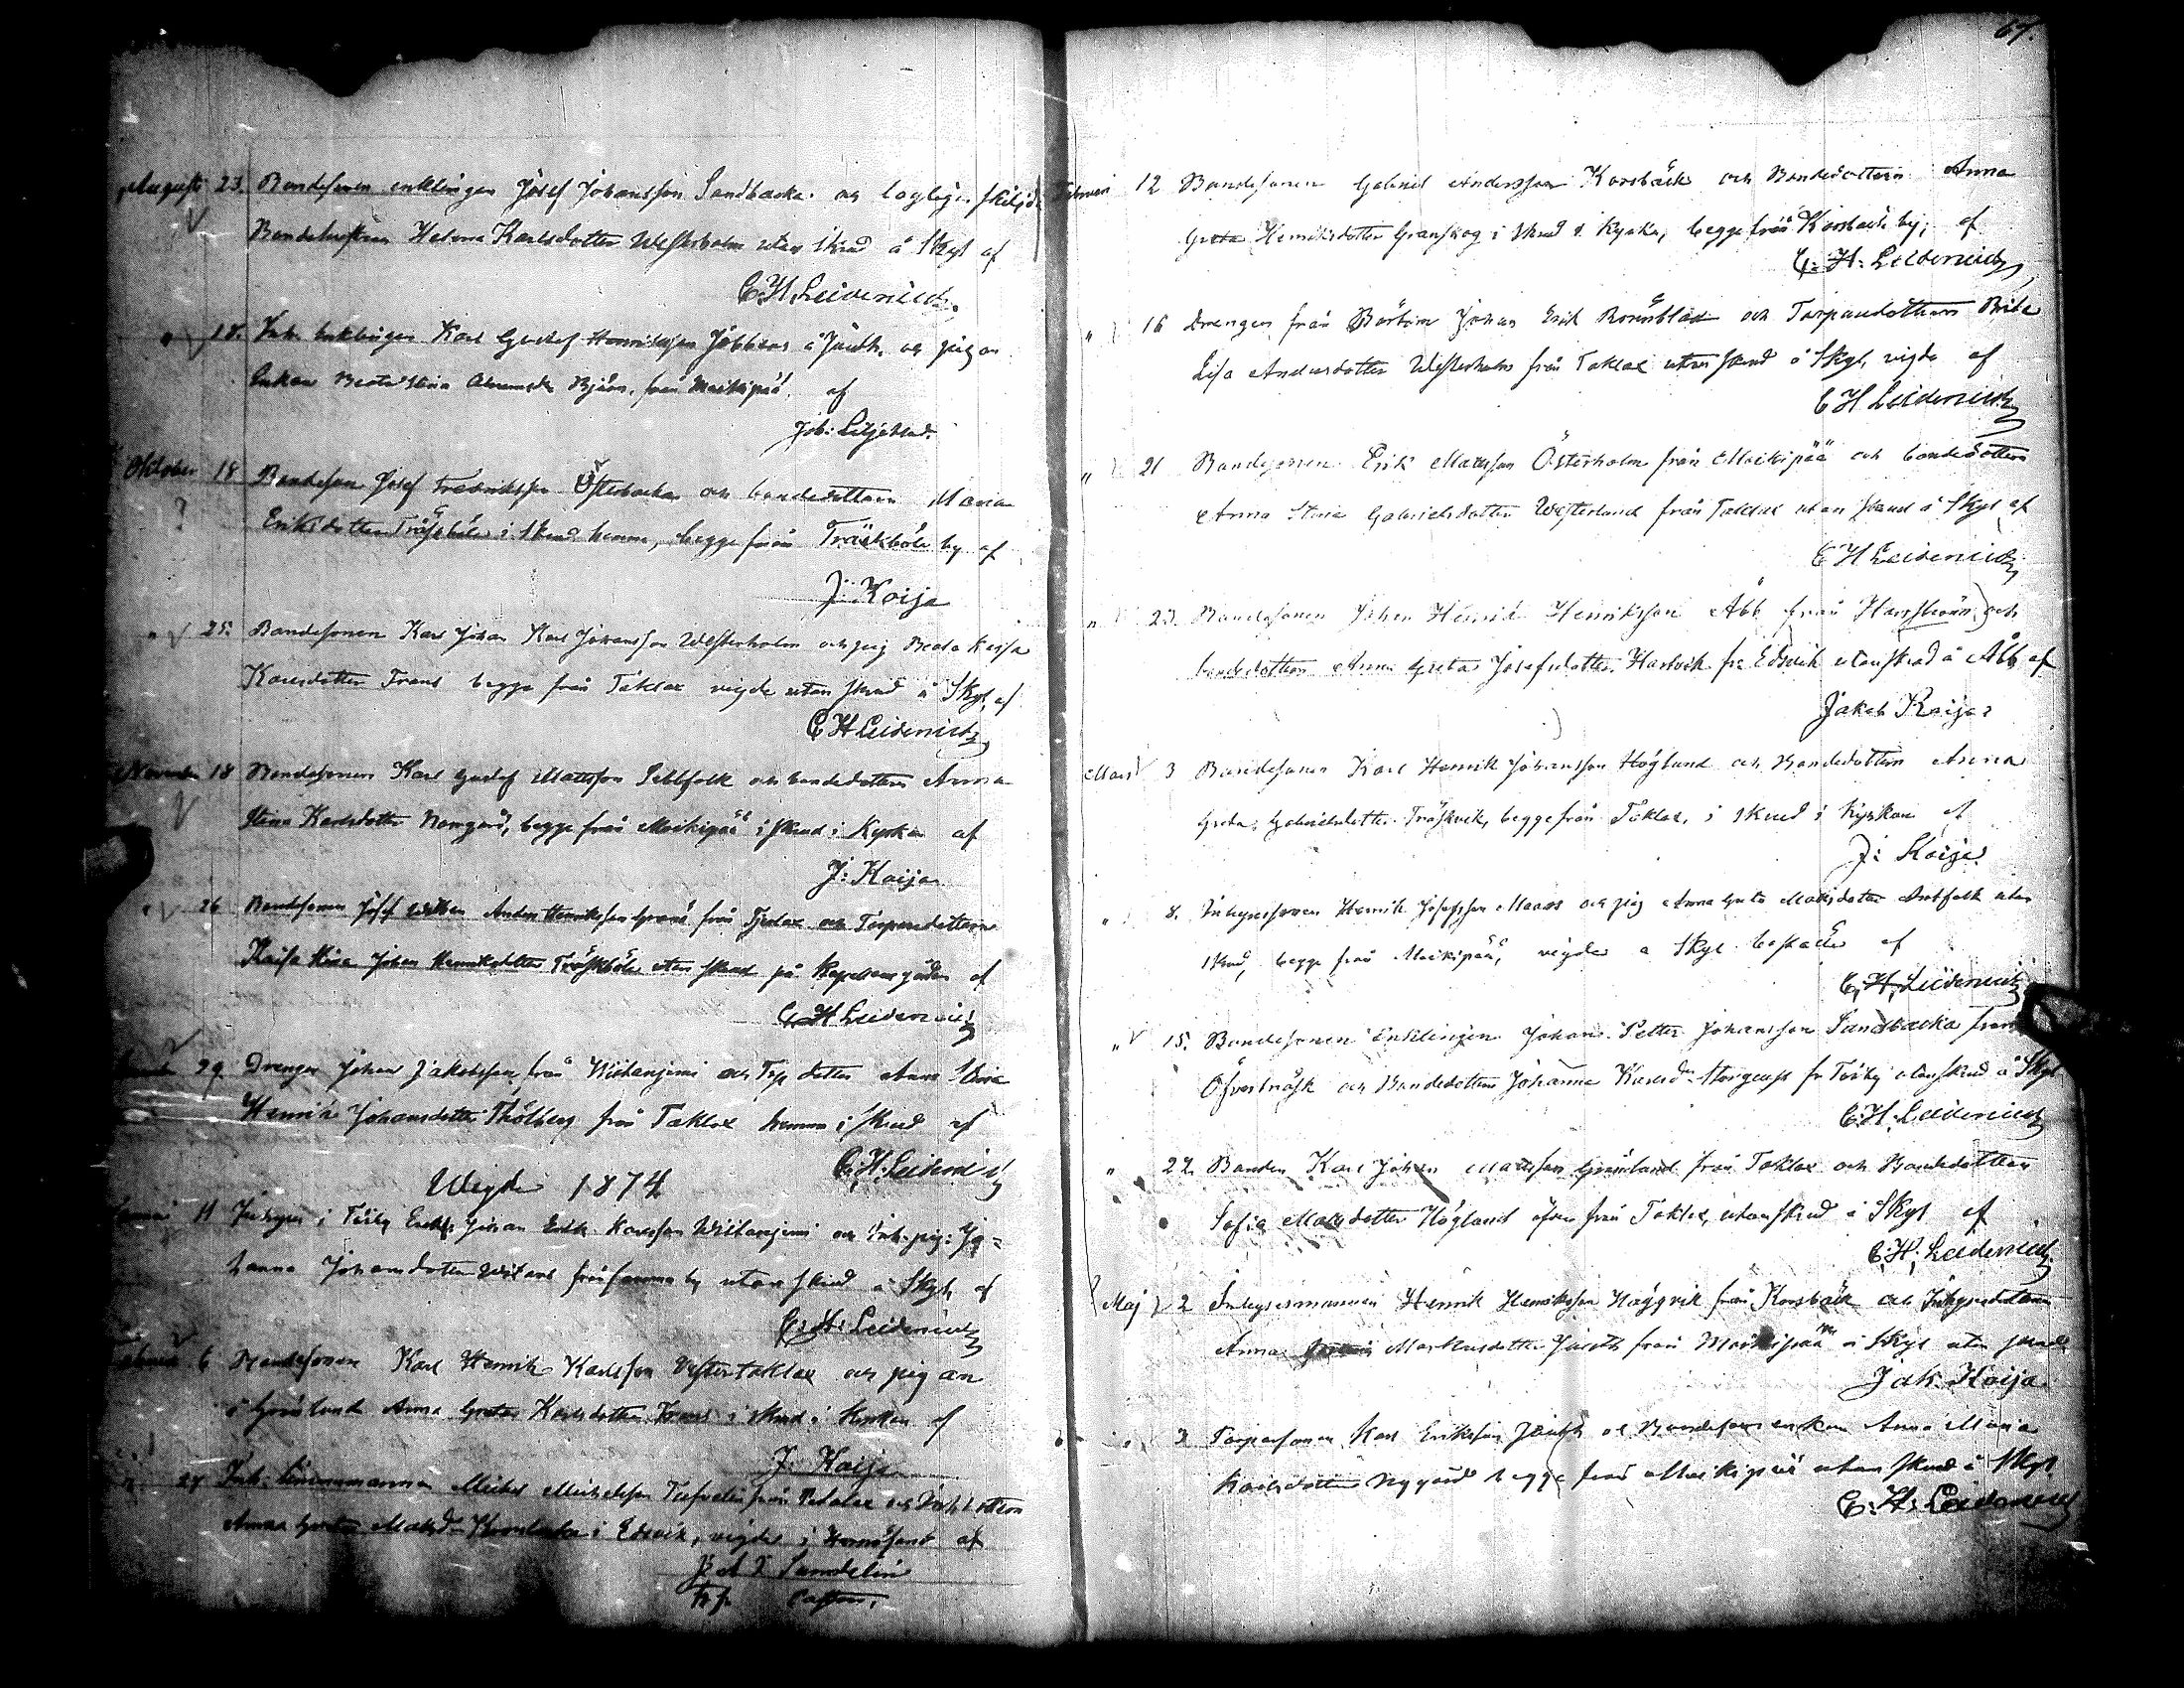 August 23. Bondesonen enklingen Josef Johansson Sandbacka och lagligen skiljde
Bondehustrun Helena Karlsdotter Westerholm utan skrud å Skgl af
C H Leidenius
" 18. Inh. Enklingen Karl Gustaf Henriksson Jåbbars å Juuth. och pigan
Enkan Beata Stina Abramsdr Björs. från Maikipää, af
Joh: Liljeblad.
Oktober 18 Bondeson Josef Fredriksson Österbacka och bondedottern Maria
? Eriksdotter Träskböle i skrud hemma, begge från Träskböle by af
J: Kaija
" 25. Bondesonen Karl Johan Karl Johansson Westerholm och pig Beata Kaisa
Karlsdotter Frans begge från Taklax vigde utan skrud å Skgl, af
C H Leidenius
November 18 Bondesonen Karl Gustaf Mattsson Sebbfolk och bondedottern Anna
Stina Karlsdotter Norrgård, begge från Maikipää i skrud i Kyrkan af
J: Kaija
" 26 Bondesonen Josef Anders Henriksson från Tjerlax och Torparedottern
Kaisa Stina Johan Henriksdotter Träskböle utan skrud på Kapellansgården af
C. H. Leidenius
29. Drengen Johan Jakobsson från Wiitanjemi och Trp dotter Anna Stina
Henrik Johansdotter Thölberg från Taklax hemma i skrud af
C: H: Leidenius
Wigde 1874
11 Inhyses i Töiby Johan Erik Karlsson Wiitanjemi och Inh. pig: Jo=
hanna Johansdotter från samma by utan skrud å Skgl, af
C: H: Leidenius
6 Bondesonen Karl Henrik Karlsson Vestertaklax och pigan
å Grönlund Anna Greta Karlsdotter Frans i skrud i Kyrkan af
J. Kaija
27 Inh. Michel Michelsson från Petalax och
Anna Greta Matsdr Korsbäck i Edsvik, vigde i Hernösand af
Sundelin
Pastor.
67.
Februari 12 Bondesonen Gabriel Andersson Korsbäck och Bondedottern Anna
Greta Henriksdotter Granskog i skrud i Kyrka, begge från Korsbäck by; af
C: H: Leidenius
" 16 Drengen från Bertom Johan Erik Rönnblad och Torparedottern Brita
Lisa Andersdotter Westerholm från Taklax utan skrud å Skgl, vigde af
C H Leidenius
" 21 Bondesonen Erik Matsson Österholm från Maikipää och bondedottern
Anna Stina Gabrielsdotter Westerlund från Taklax utan skrud å Skgl af
C H Leidenius
" 23. Bondesonen Johan Henrik Henriksson Åbb från Harrström, och
bondedottern Anna Greta Josefsdotter Hartvik fr. Edsvik utan skrud å Åbb af
Jakob Kaija
Mars 3 Bondesonen Karl Henrik Johansson Höglund och Bondedottern Anna
Greta Gabrielsdotter Träskvik, begge från Taklax, i skrud i Kyrkan af
J: Kaija
" 8. Inhysessonen Henrik Josefsson Maars och pig Anna Greta Matsdotter Antfolk utan
skrud, begge från Maikipää, vigde å Skgl af
C. H. Leidenius
" 15. Bondesonen Enklingen Johan Petter Johansson Sandbacka från
Öfverträsk och Bondedottern Johanna Karlsdr fr Töiby utan skrud å Skgl
C. H. Leidenius
" 22. Bonden Karl Johan Matsson Grönlund från Taklax och Bondedottern
Sofia Matsdotter Höglund äfven från Taklax, utan skrud å Skgl af
C: H: Leidenius
Maj 2 Inhysesmannen Henrik Henriksson Höggvik från Korsbäck och Inhysesdottern
Anna Markusdotter Juuth från Maikipää å Skgl utan skrud
Jak. Kaija
" 3 Torparsonen Karl Eriksson Juuth och Bondesons enkan Anna Maria
Karlsdotter Nygård begge från Maikipää utan skrud å Skgl
C: H: Leidenius